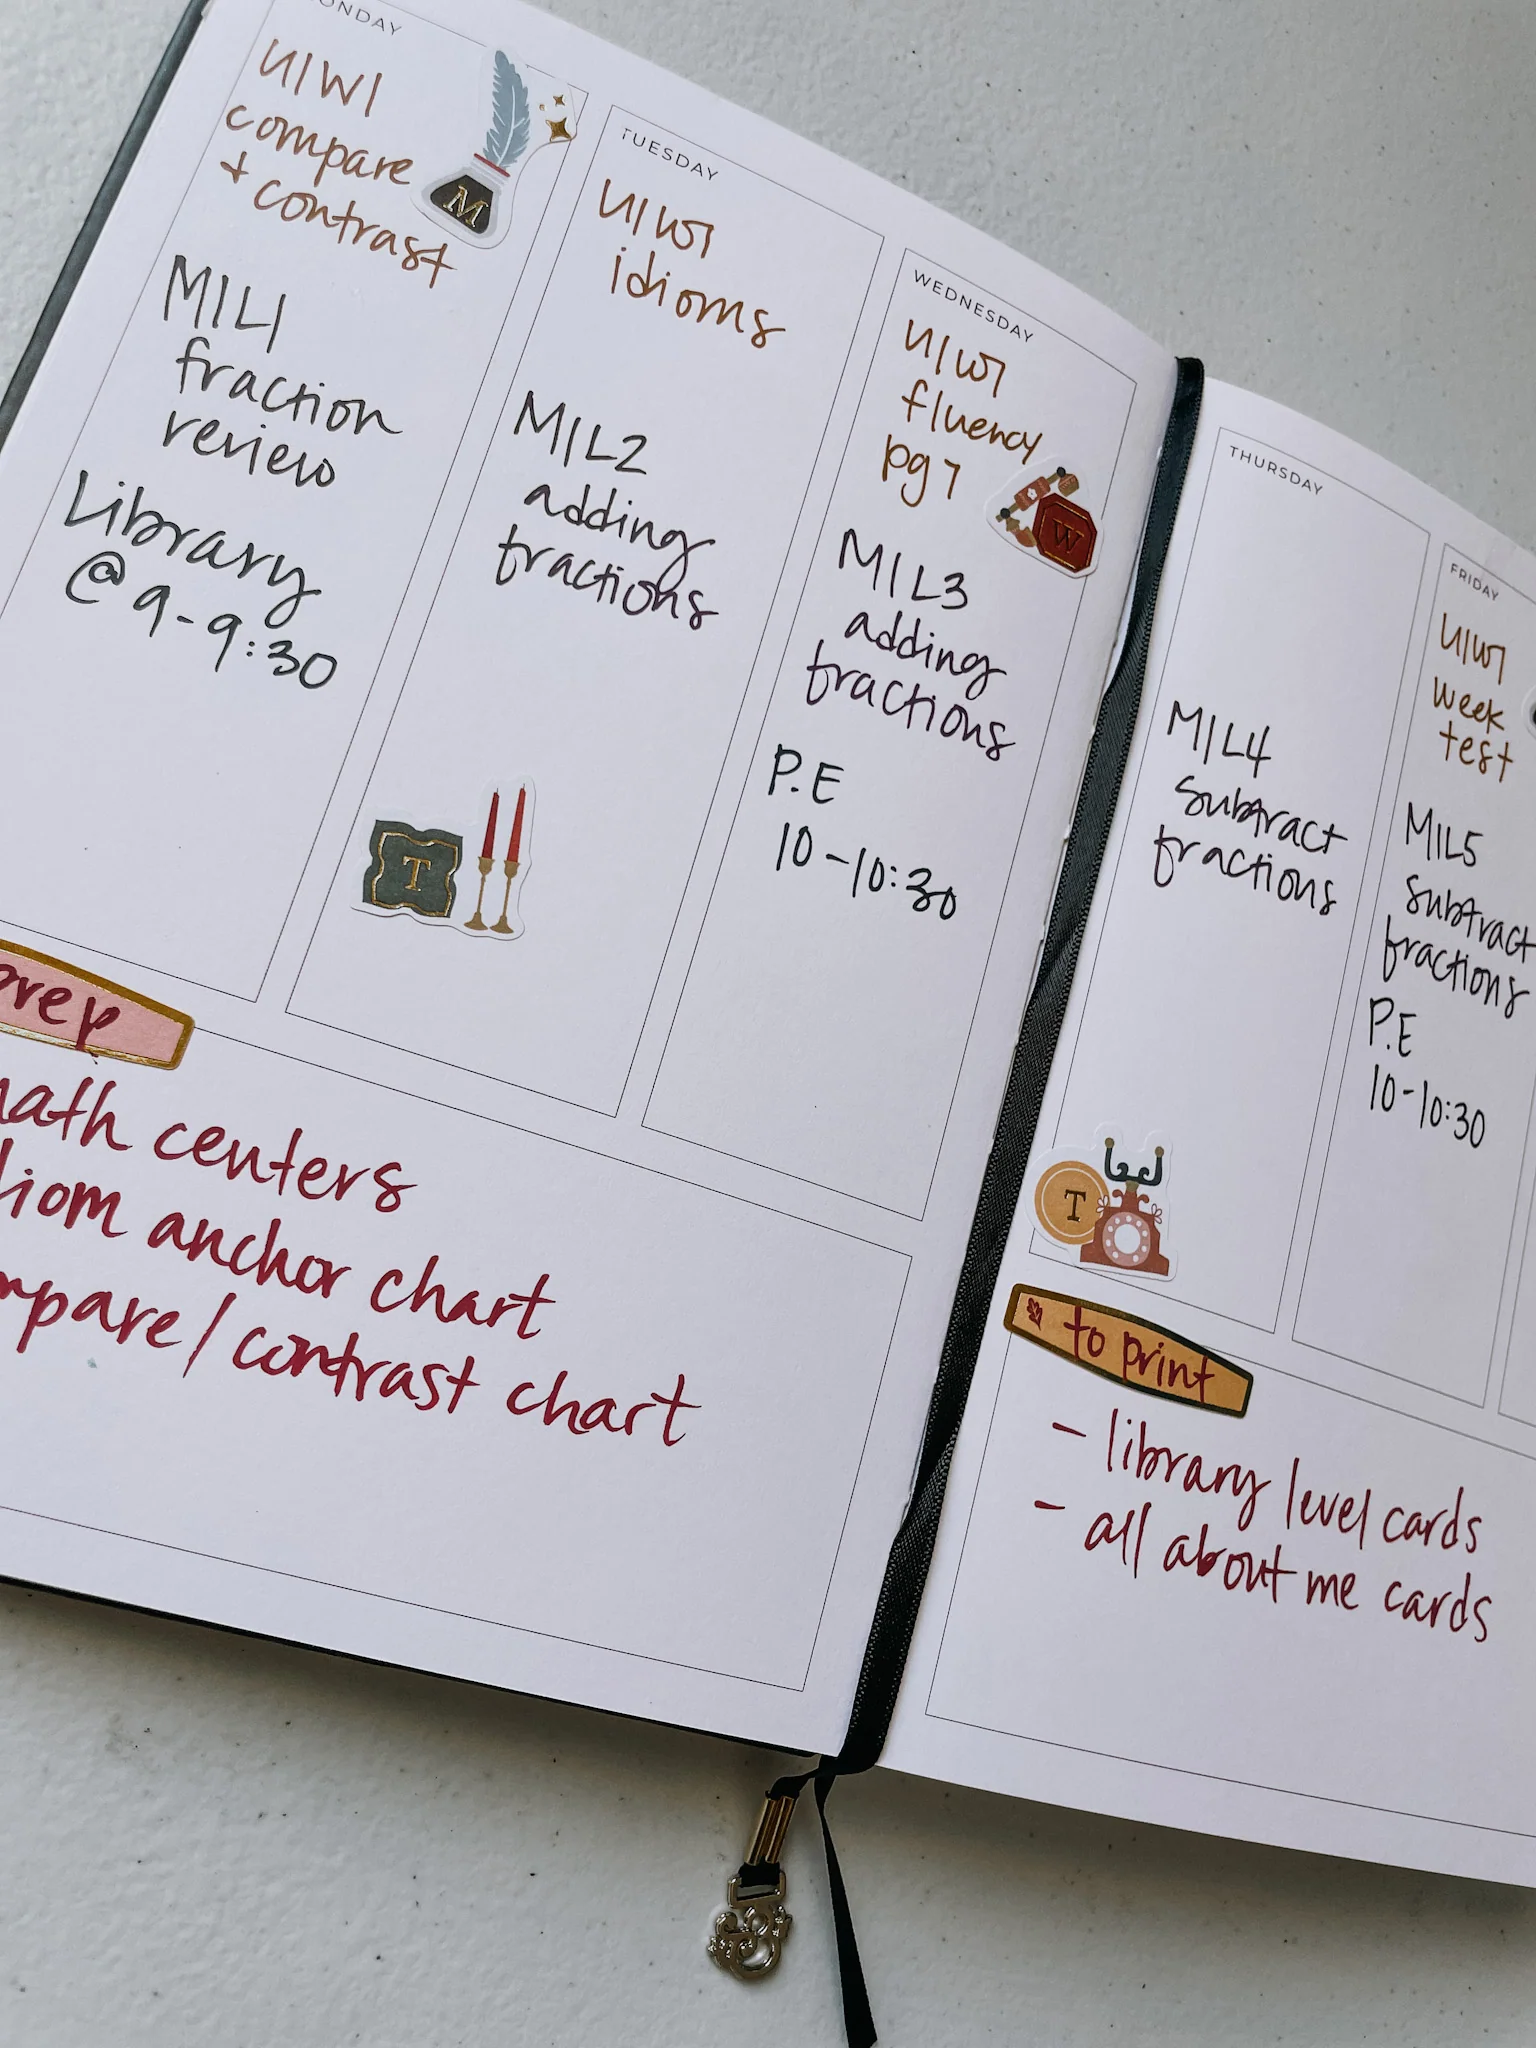 ONDAY
U1W1
compare
+ contrast
M
M1L1
fraction
review
Library
@ 9-9:30
TUESDAY
U1W1
idioms
M1L2
adding
fractions
T
WEDNESDAY
U1W1
fluency
pg 7
W
M1L3
adding
fractions
P.E
10-10:30
prep
math centers
idiom anchor chart
mpare/contrast chart
THURSDAY
M1L4
subtract
fractions
T
FRIDAY
U1W1
week
test
M1L5
subtract
fractions
P.E
10-10:30
to print
- library level cards
- all about me cards